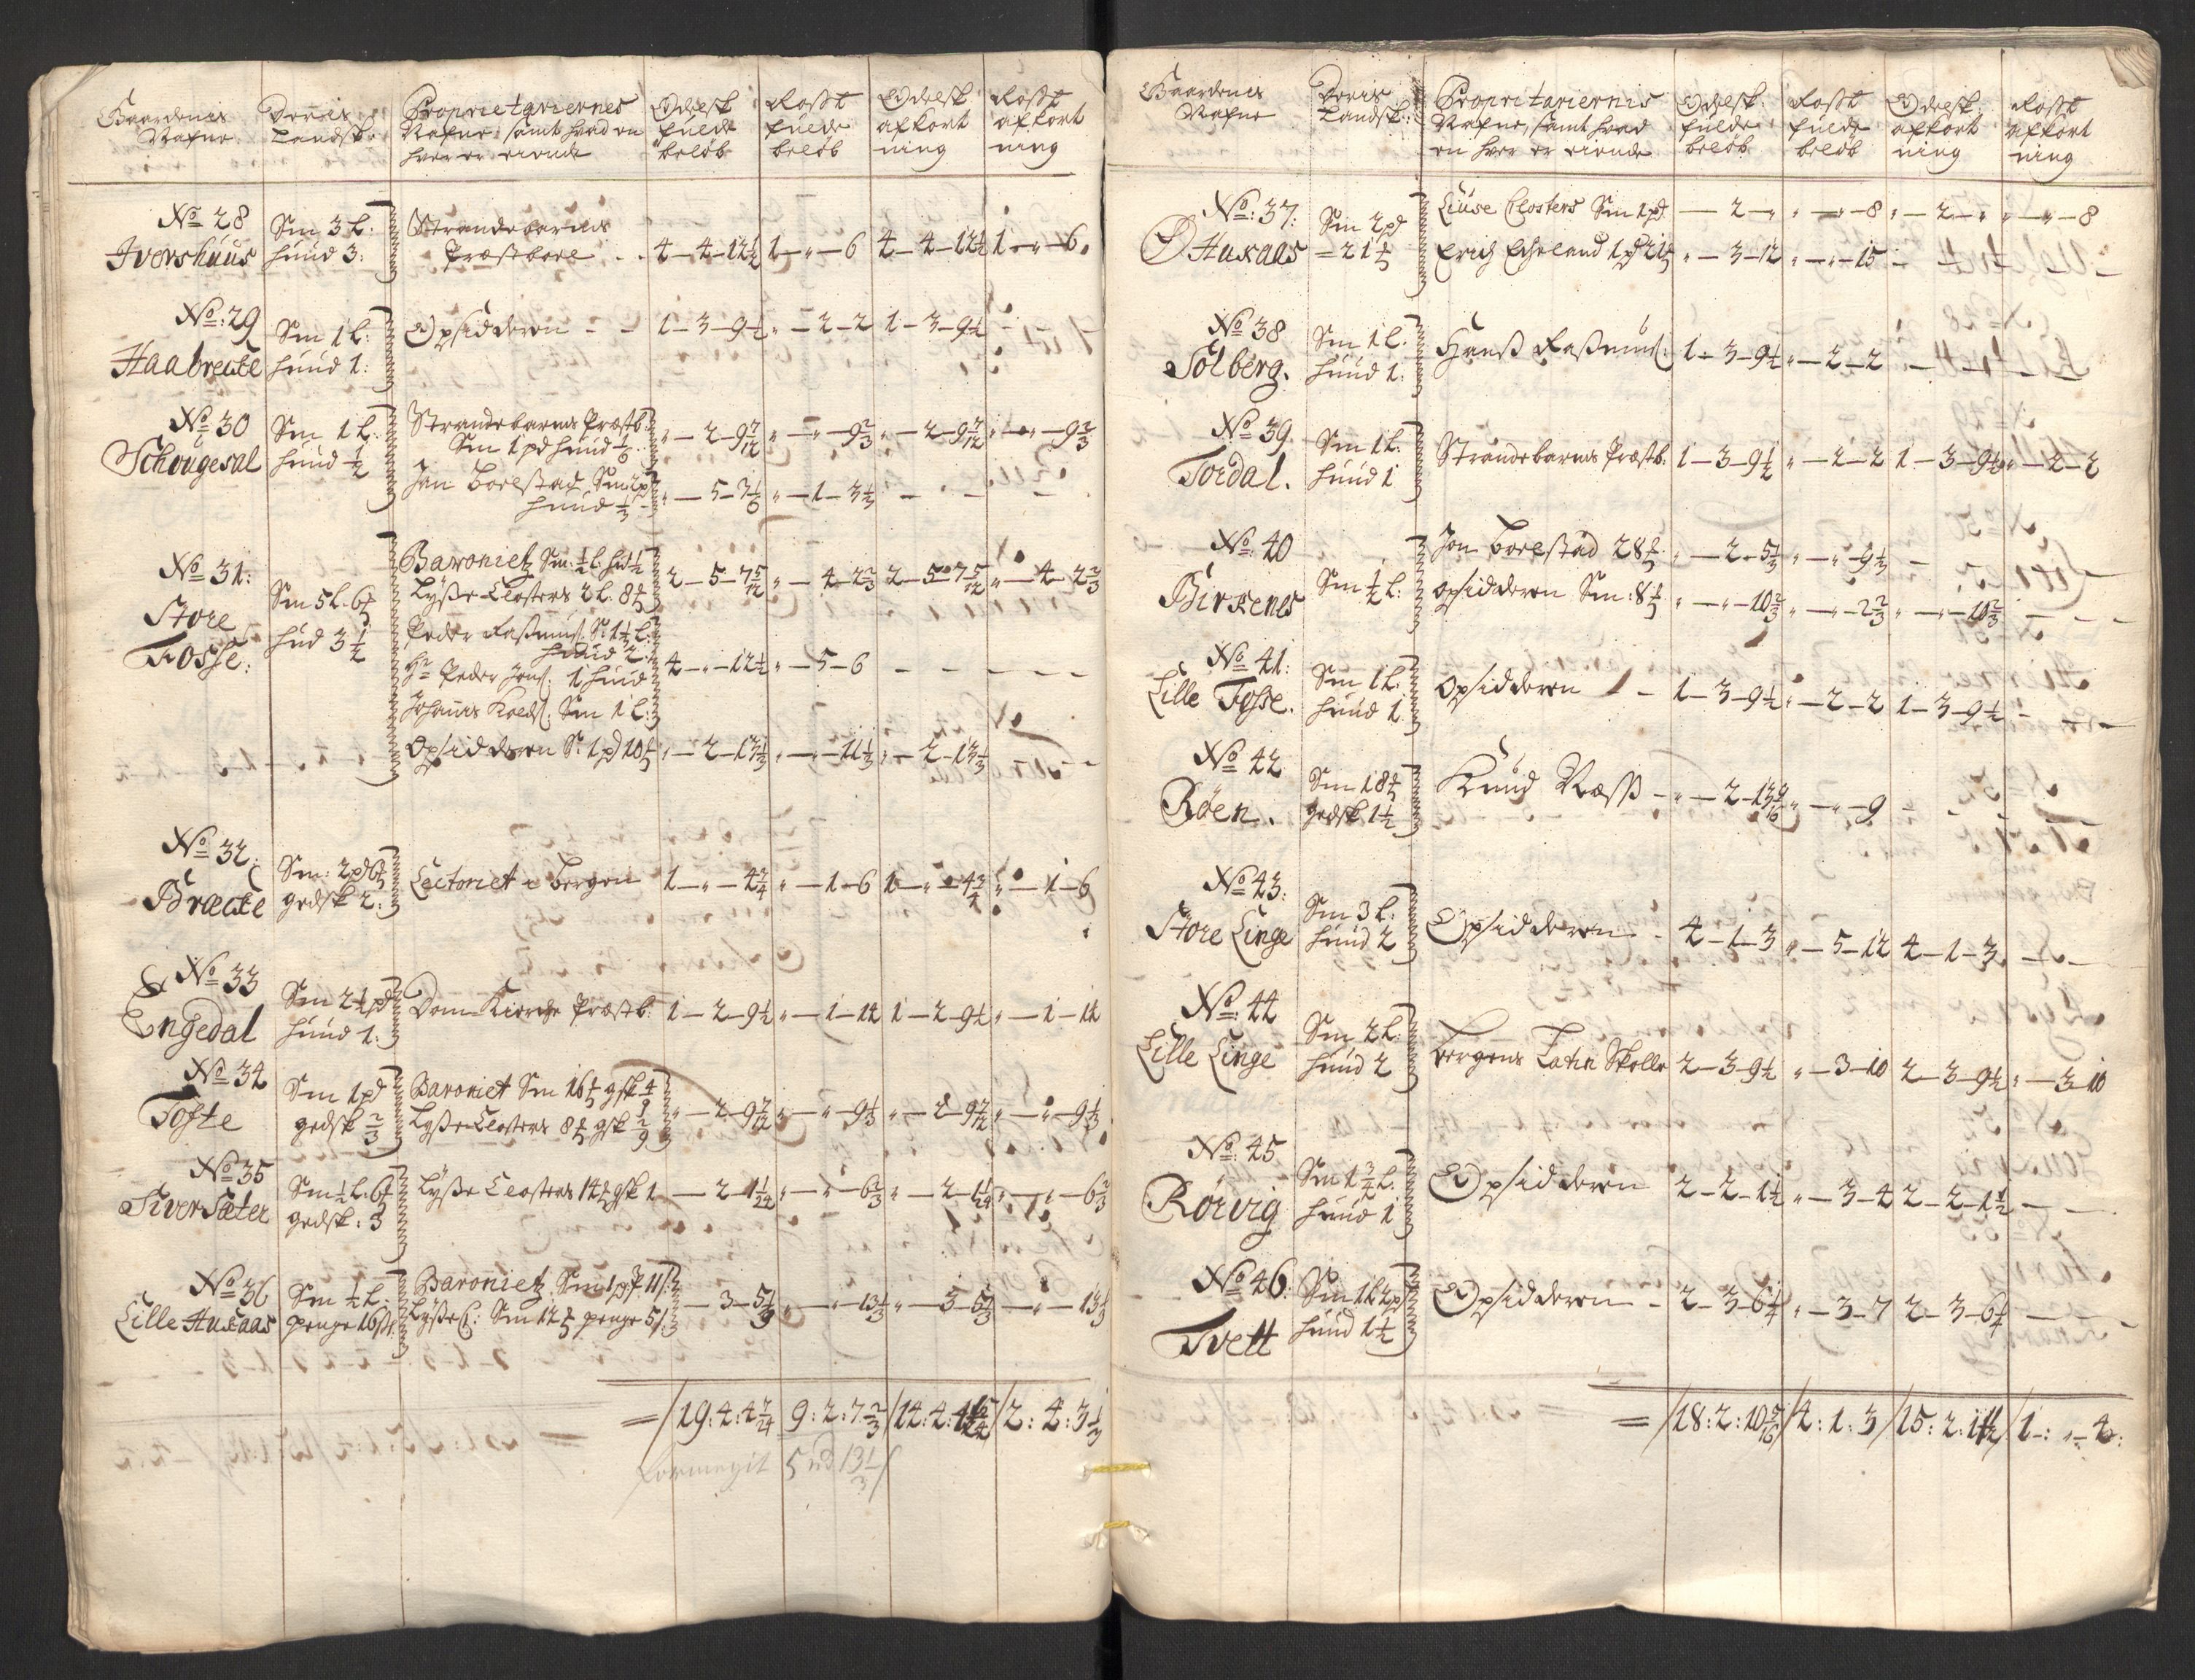 Gaardenis Nafne | Deris Landsk: | Proprietariernes Nafne, samt hvad en hver er eiende | Odelsk: fulde beløb | Rostt fulde beløb | Odelsk afkort ning | Rostt afkort ning
No 28 Ivershuus | Sm 3 L: huud 3: | Strandebarms Præstbore | 4–4–12½ | 1–"–6 | 4–4–12½ | 1–"–6
No: 29 Haabrecke | Sm 1 L: huud 1: | Opsidderen | 1–3–9½ | "–2–2 | 1–3–9½ | –
No 30 Schougesal | Sm 1 L: huud ½ | Strandebarms Præstb: Sm 1 pd huud 1/6 | "–2–9 7/12 | "–"–9 2/3 | "–2–9 7/12 | "–"–9 2/3
Jon Borestad Sm 2 pd huud 1/3 | "–5–3 1/6 | "–1–3 1/3 | – | –
No 31: Store Fosse: | Sm 5 L. 6 hud 3½ | Baroniet Sm: ½ L: hud ½
Lysse Closters 2 L. 8 | 2–5–7 5/12 | "–4–2 2/3 | 2–5–7 5/12 | "–4–2 2/3
Peder Rasmus: S: 1½ L: huud 2
Hr Peder Jens: 1 huud | 4–"–12½ | "–5–6 | – | –
Johanes Kolds: Sm 1 L:
Opsidderen S: 1 pd 10 | "–2–13 1/3 | "–"–11 1/3 | "–2–13 1/3 | –
No 32: Bræcke | Sm: 2 pd 6 gedsk 2: | Lectoriet i Bergen | 1–"–4 3/4 | "–1–6 | 1–"–4 3/4 | "–1–6
No 33 Engedal | Sm 2½ pd huud 1: | Dom Kierche Præstb: | 1–2–9½ | "–1–14 | 1–2–9½ | "–1–14
No 34 Tofte | Sm 1 pd gedsk 2/3 | Baroniet Sm 16 gsk 4/9
Lysse Closters 8 gsk 2/9 | "–2–9 7/12 | "–"–9 1/3 | "–2–9 7/12 | "–"–9 1/3
No 35 Tversæter | Sm ½ L. 6 gedsk: 3 | Lysse Closters 14 gsk 1 | –2–1 1/24 | "–"–6 2/3 | "–2–1 1/24 | "–"–6 2/3
No 36 Lille Auraas | Sm ½ L: penge 16 s: | Baroniet Sm 1 pd 11 s
Lysse C: Sm 12 penge 5 s | –3–5 1/3 | "–"–13 1/3 | "–3–5 1/3 | –"–13 1/3
= /19:4:4 7/24 | 9:2:7 2/3 | /14:4:4 | /2:4:3 1/3
5 13 1/3
Gaardenis Nafne | Deris Landsk: | Propritariernis Nafne, samt hvad en hver er eiende | Odelsk: fulde beløb | Rostt fulde beløb | Odelsk: afkort ning | Rostt afkort ning
No: 37: Auraas | Sm 2 pd = 21 | Liuse Closters Sm 1 pd | –2–" | "–"–8 | "–2–" | "–"–8
Erich Echeland 1 pd 21 | "–3–12 | "–"–15 | – | –
No 38 Solberg. | Sm 1 L. huud 1: | Hans Rasmus: | 1–3–9½ | "–2–2 | – | –
No 39 Tordal. | Sm 1 L: huud 1 | Strandebarms Præstb: | 1–3–9½ | "–2–2 | 1–3–9½ | "–2–2
No: 40 Birkenes | Sm ½ L: | Jon Borestad 28 | "–2–5 1/3 | "–"–9 1/3 | –
Opsidderen Sm: 8 | "–"–10 2/3 | "–"–2 2/3 | "–"–10 2/3 | –
No 41: Lille Fosse. | Sm 1 L: huud 1 | Opsidderen | 1–3–9½ | "–2–2 | 1–3–9½ | –
No 42 Røen. | Sm 18 gedsk 1½ | Knud Næss | "–2–13 9/16 | "–"–9 | – | –
No 43: Store Linge | Sm 3 L: huud 2 | Opsidderen | 4–1–3 | "–5–12 | 4–1–3 | –
No: 44 Lille Linge | Sm 2 L: huud 2 | Bergens Latin Skolle | 2–3–9½ | "–3–10 | 2–3–9½ | "–3–10
No: 45 Rørvig | Sm 1 3/4 L. huud 1 | Opsidderen | 2–2–1½ | "–3–4 | 2–2–1½ | –
No 46: Tvett | Sm 1 L 2 pd huud 1½ | Opsidderen | 2–3–6¼ | "–3–7 | 2–3–6¼ | –
= /18:2:10 5/16 | /4:1:3 | /15:2:11 | /1–:"–4: